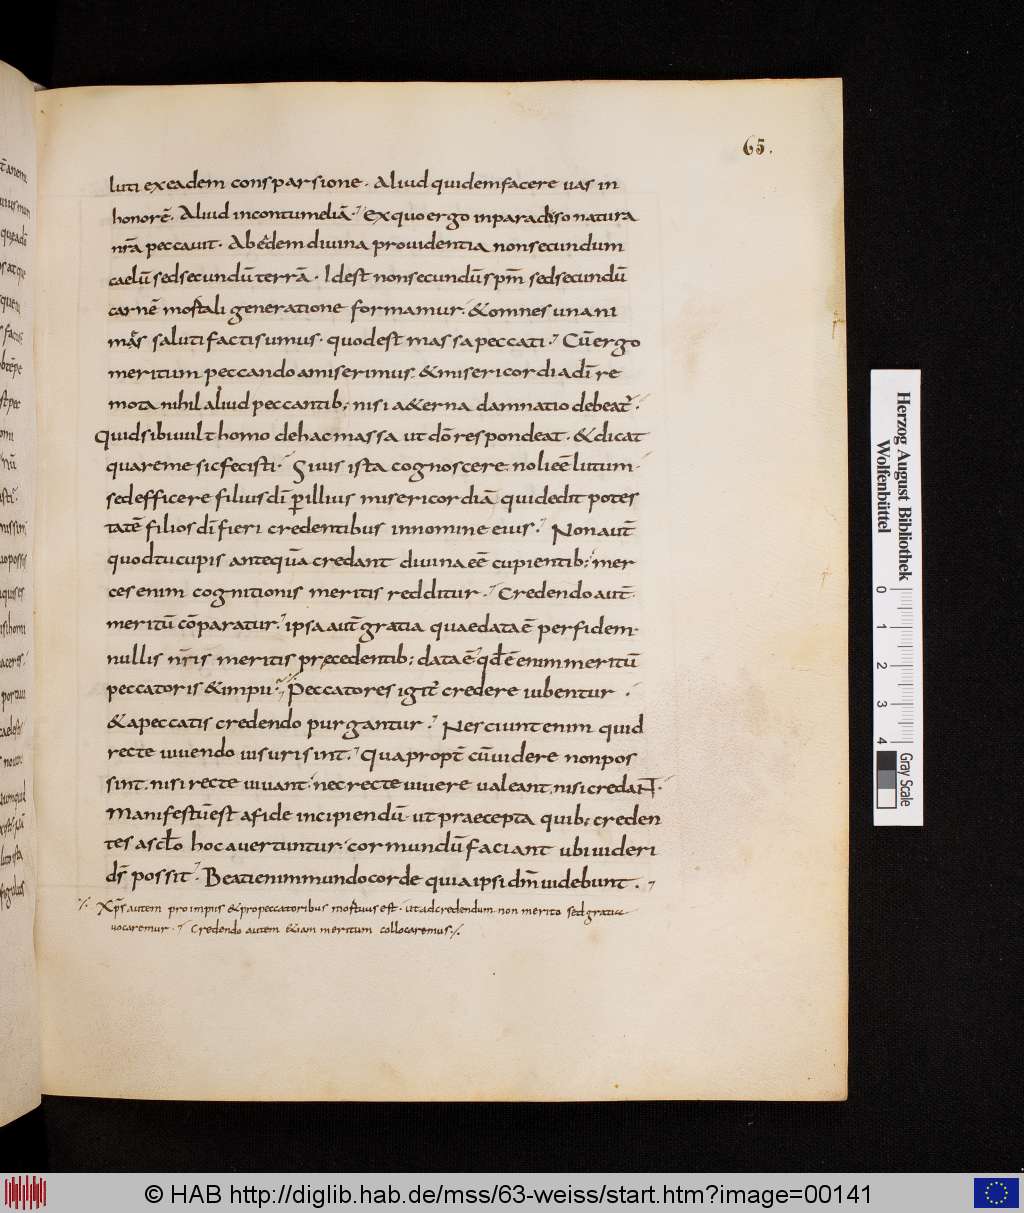 65.
luti exeadem consparsione. Aliud quidem facere uas in
honorē. Aliud incontumeliā. Ex quo ergo inparadiso natura
nr̄a peccauit. Ab eadem diuina prouidentia nonsecundum
caelū sedsecundū terrā. Idest nonsecundū spm̄ sedsecundū
carnē mortali generatione formamur. &omnes una ni
mārs saluti facti sumus. quodest massa peccati. Cū ergo
meritum peccando amiserimus. &misericordia dī re
mota nihil aliud peccantib; nisi a&erna damnatio debeat̄.
Quid sibi uult homo dehac massa ut dō respondeat. &dicat
quareme sicfecisti. Si uis ista cognoscere. noli eē lutum.
sed efficere filius dī per illius misericordiā qui dedit potes
tatē filios dī fieri credentibus innomine eius. Non aut̄
quod tu cupis antequā credant diuina eē cupientib; mer
ces enim cognitionis meritis redditur. Credendo aut̄
meritū cōparatur. ipsa aut̄ gratia quae data ē perfidem.
nullis nr̄is meritis precedentib; data ē qđ ē enim meritū
peccatoris &impii. Peccatores igit̄ credere iubentur.
&apeccatis credendo purgantur. Nesciunt enim quid
recte uiuendo uisuri sint. Quapropt̄ cū uidere nonpos
sint. nisi recte uiuant. nec recte uiuere ualeant. nisi credant.
Manifestū est afide incipiendū. ut praecepta quib; creden
tes a sc̄lo hoc auertuntur. cor mundū faciant ubi uideri
ds̄ possit. Beati enim mundo corde quia ipsi dm̄ uidebunt.
Xp̄s autem pro impiis &propeccatoribus mortuus est. ut ad credendum non merito sed gratiae
uocaremur. Credendo autem &iam meritum collocaremus.
Herzog August Bibliothek
Wolfenbüttel
0 1 2 3 4
Gray Scale
© HAB http://diglib.hab.de/mss/63-weiss/start.htm?image=00141